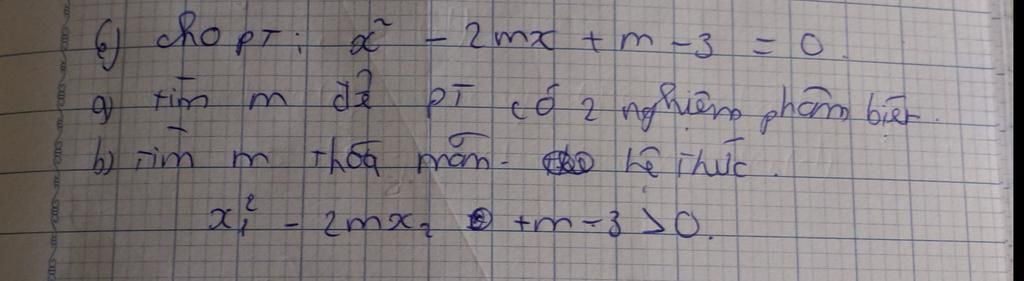 6) Cho PT: x² - 2mx + m - 3 = 0.
a) Tìm m để PT có 2 nghiệm phâm biệt.
b) Tìm m thõa mãn hệ thức.
x₁² - 2mx₂ + m - 3 > 0.